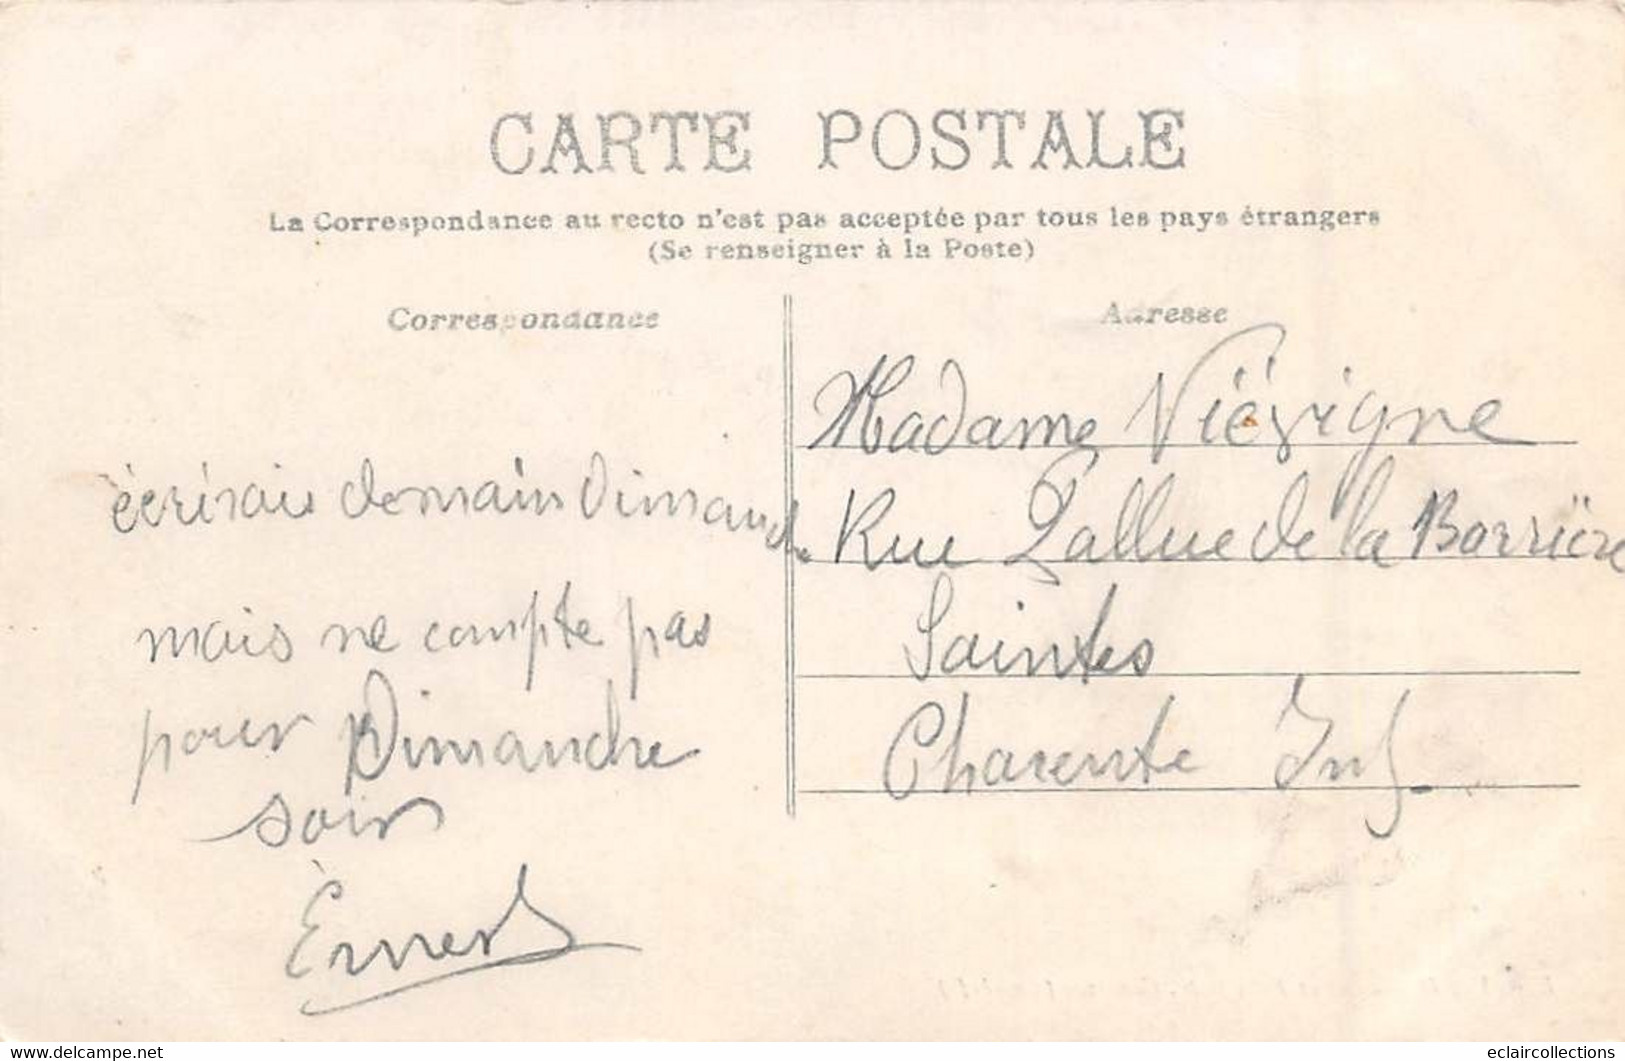 CARTE POSTALE
La Correspondance au recto n'est pas acceptée par tous les pays étrangers
(Se renseigner à la Poste)
Correspondance
écrirais demain Dimanche
mais ne compte pas
pour Dimanche
soir
Ernest
Adresse
Madame Viévigne
Rue Lallue de la Borrière
Saintes
Charente Inf.
delcampe.net
eclaircollections